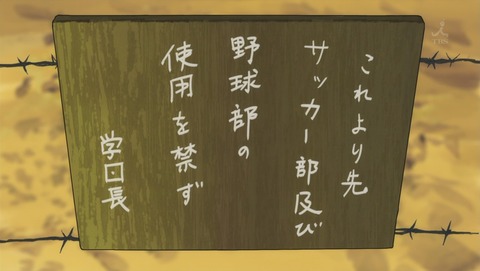 これより先
サッカー部及び
野球部の
使用を禁ず
学口長